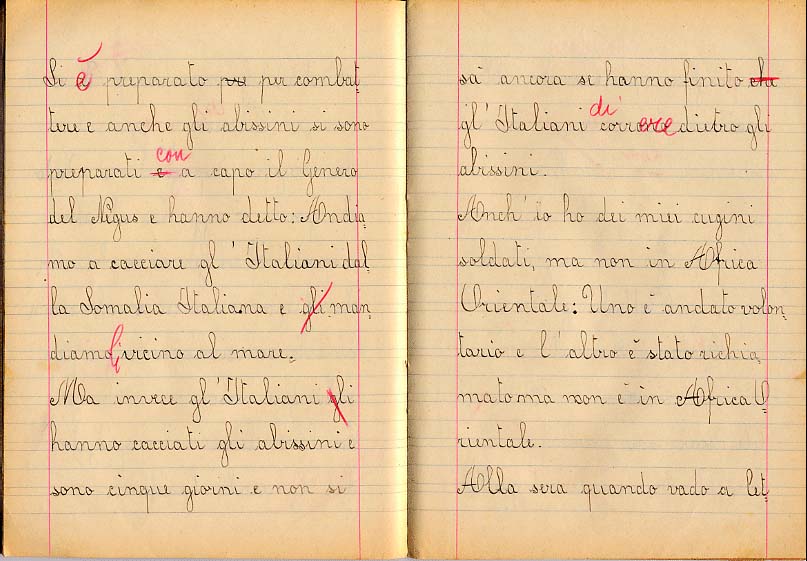 Si è preparato pre per combat
tere e anche gli abissini si sono
con
preparati e a capo il Genero
del Nêgus e hanno detto: Andia
mo a cacciare gl' Italiani dal
la Somalia Italiana e gli man
diamoli vicino al mare.
Ma invece gl' Italiani gli
hanno cacciati gli abissini e
sono cinque giorni e non si
sà ancora se hanno finito che
di
gl' Italiani correre dietro gli
abissini.
Anch' io ho dei miei cugini
soldati, ma non in Africa
Orientale: Uno è andato volon
tario e l' altro è stato richia
mato ma non è in Africa O
rientale.
Alla sera quando vado a let